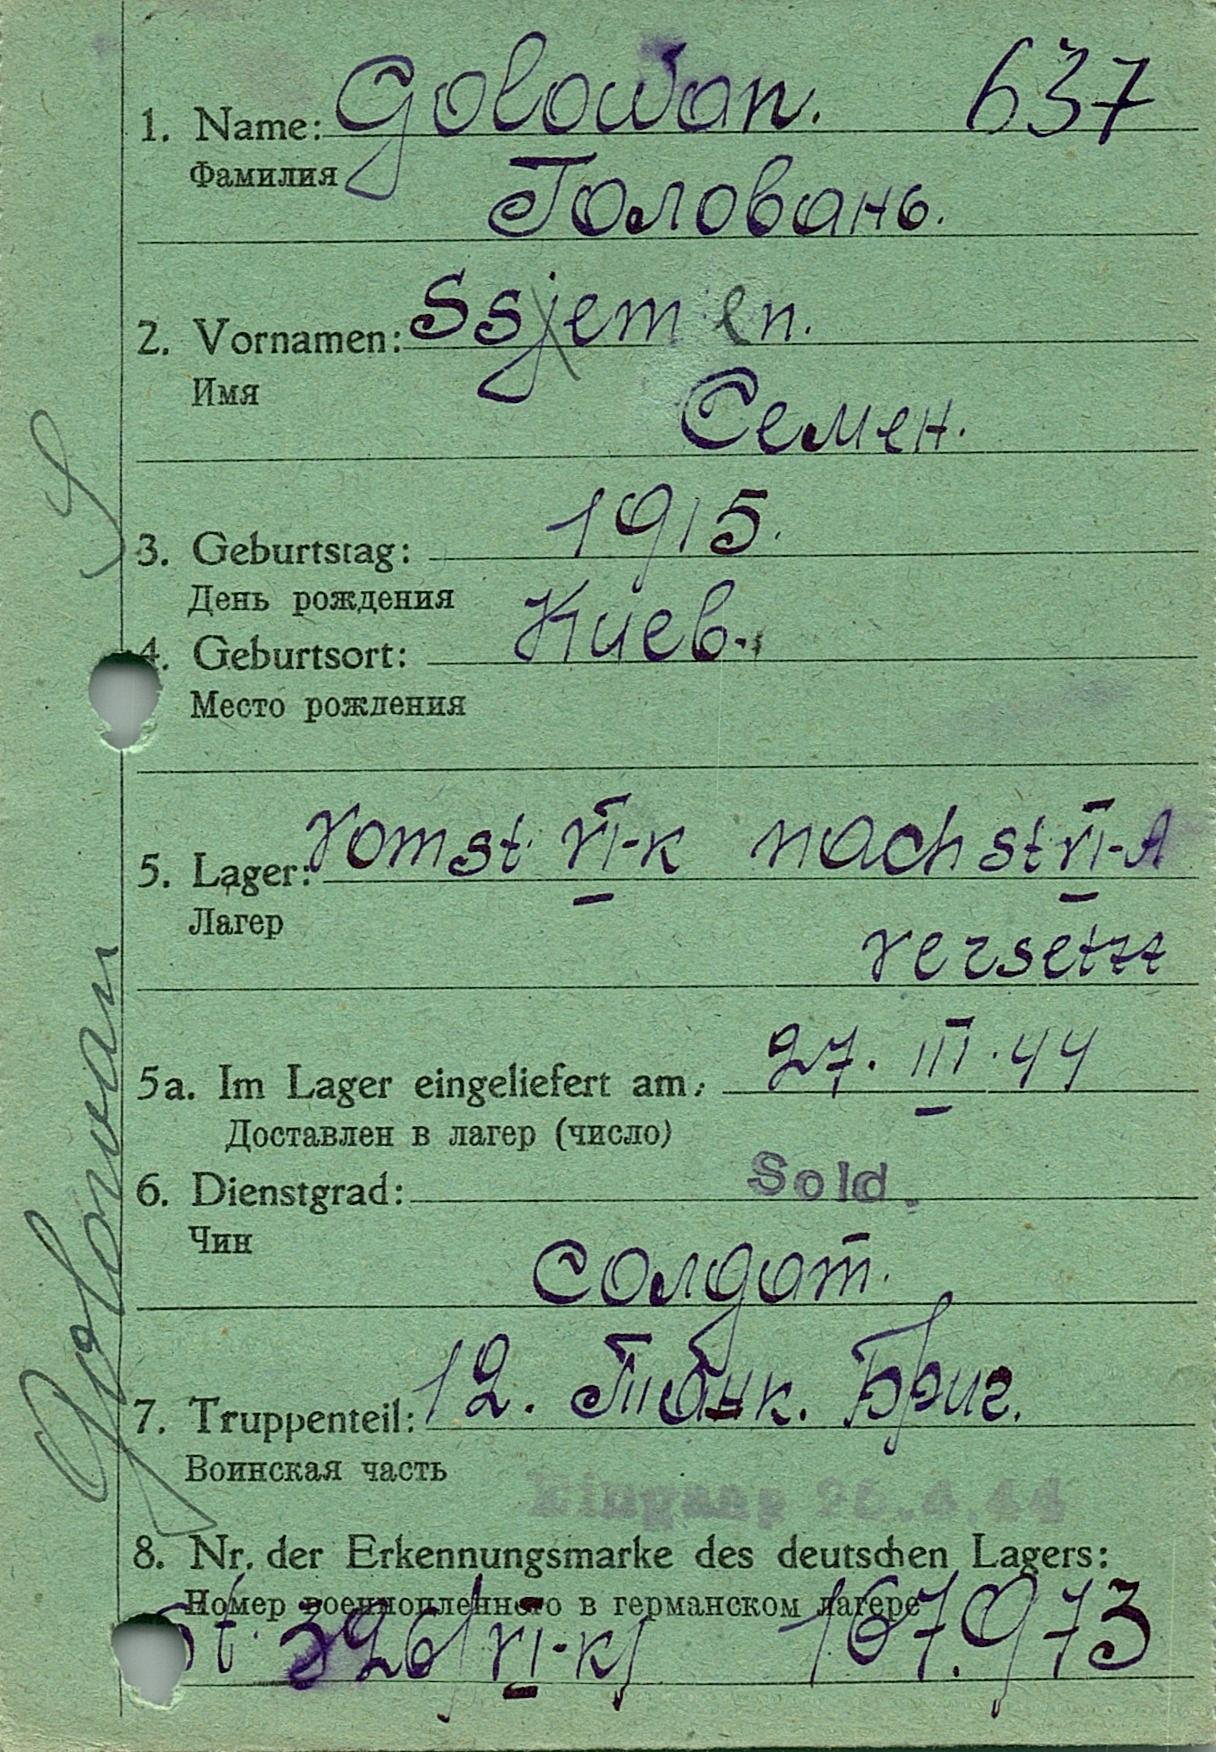 1. Name: Golowan. 637
Фамилия
Головань.
2. Vornamen: Ssjemen.
Имя
Семен.
3. Geburtstag: 1915.
День рождения
4. Geburtsort: Киев.
Место рождения
5. Lager: vom st. VI-K nach st VI-A
Лагер
versetzt
5a. Im Lager eingeliefert am: 27. III. 44
Доставлен в лагер (число)
6. Dienstgrad: Sold.
Чин
солдат.
7. Truppenteil: 12. Танк. Бриг.
Воинская часть
Eingang 26.4.44
8. Nr. der Erkennungsmarke des deutschen Lagers:
Номер военнопленного в германском лагере
St. 326/VI-K/ 167.973
Golowan
S